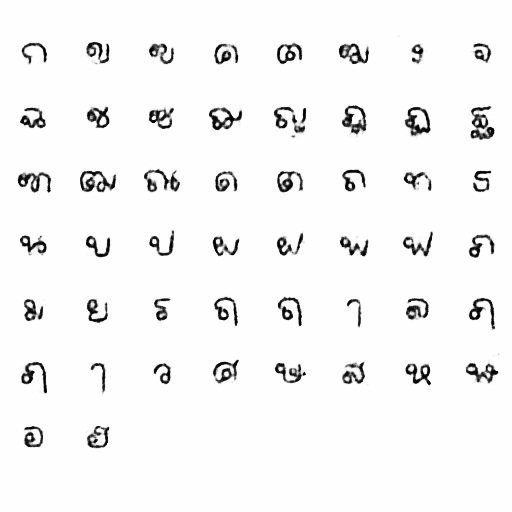 ก ข ฃ ค ฅ ฆ ง จ
ฉ ช ซ ฌ ญ ฎ ฏ ฐ
ฑ ฒ ณ ด ต ถ ท ธ
น บ ป ผ ฝ พ ฟ ภ
ม ย ร ฤ ฤ า ล ฦ
ฦ า ว ศ ษ ส ห ฬ
อ ฮ